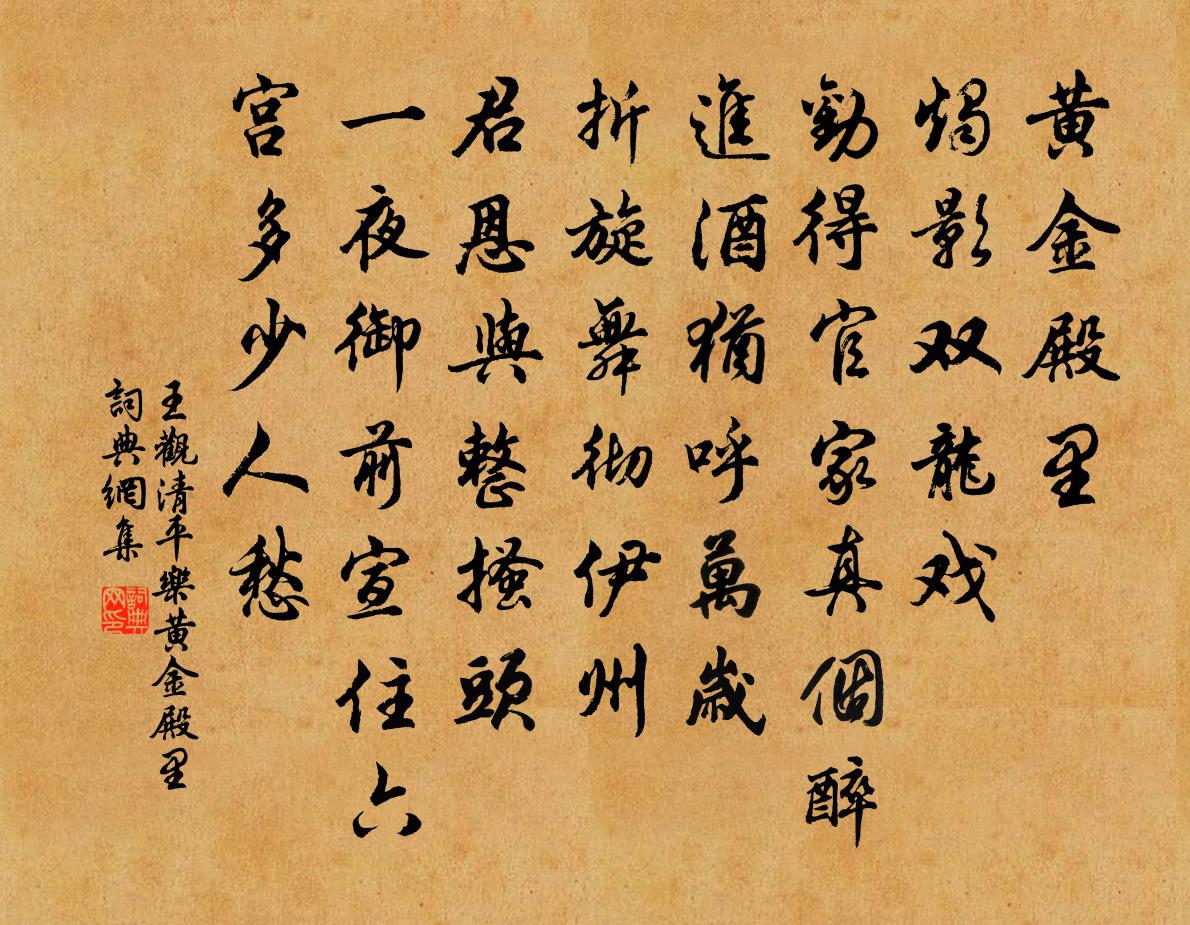 黄金殿里
燭影双龍戏
勸得官家真個醉
進酒猶呼萬歲
折旋舞彻伊州
君恩與整搔頭
一夜御前宣住六
宫多少人愁
王觀清平樂黄金殿里
詞典網集
詞典网印